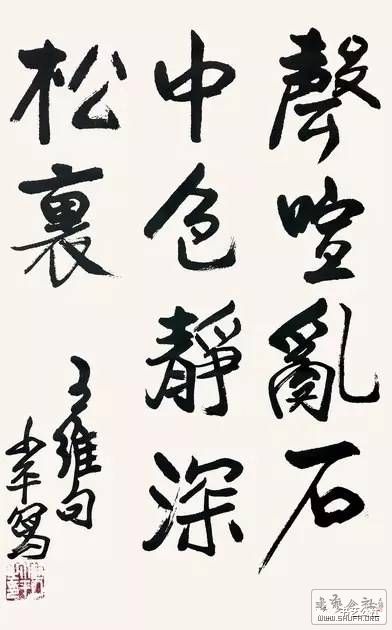 聲喧亂石
中色靜深
松裏
王維句
寫
WWW.SHUFA.ORG